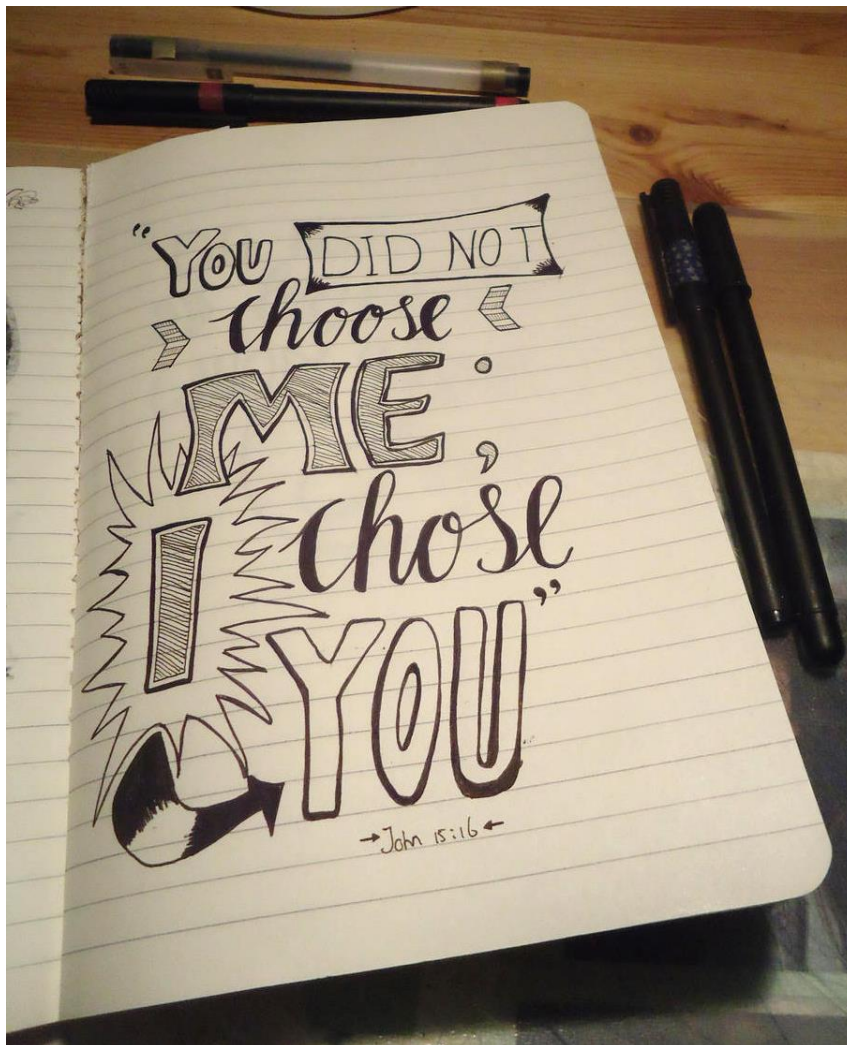 “YOU DID NOT
choose
ME;
I chose
YOU”
John 15:16